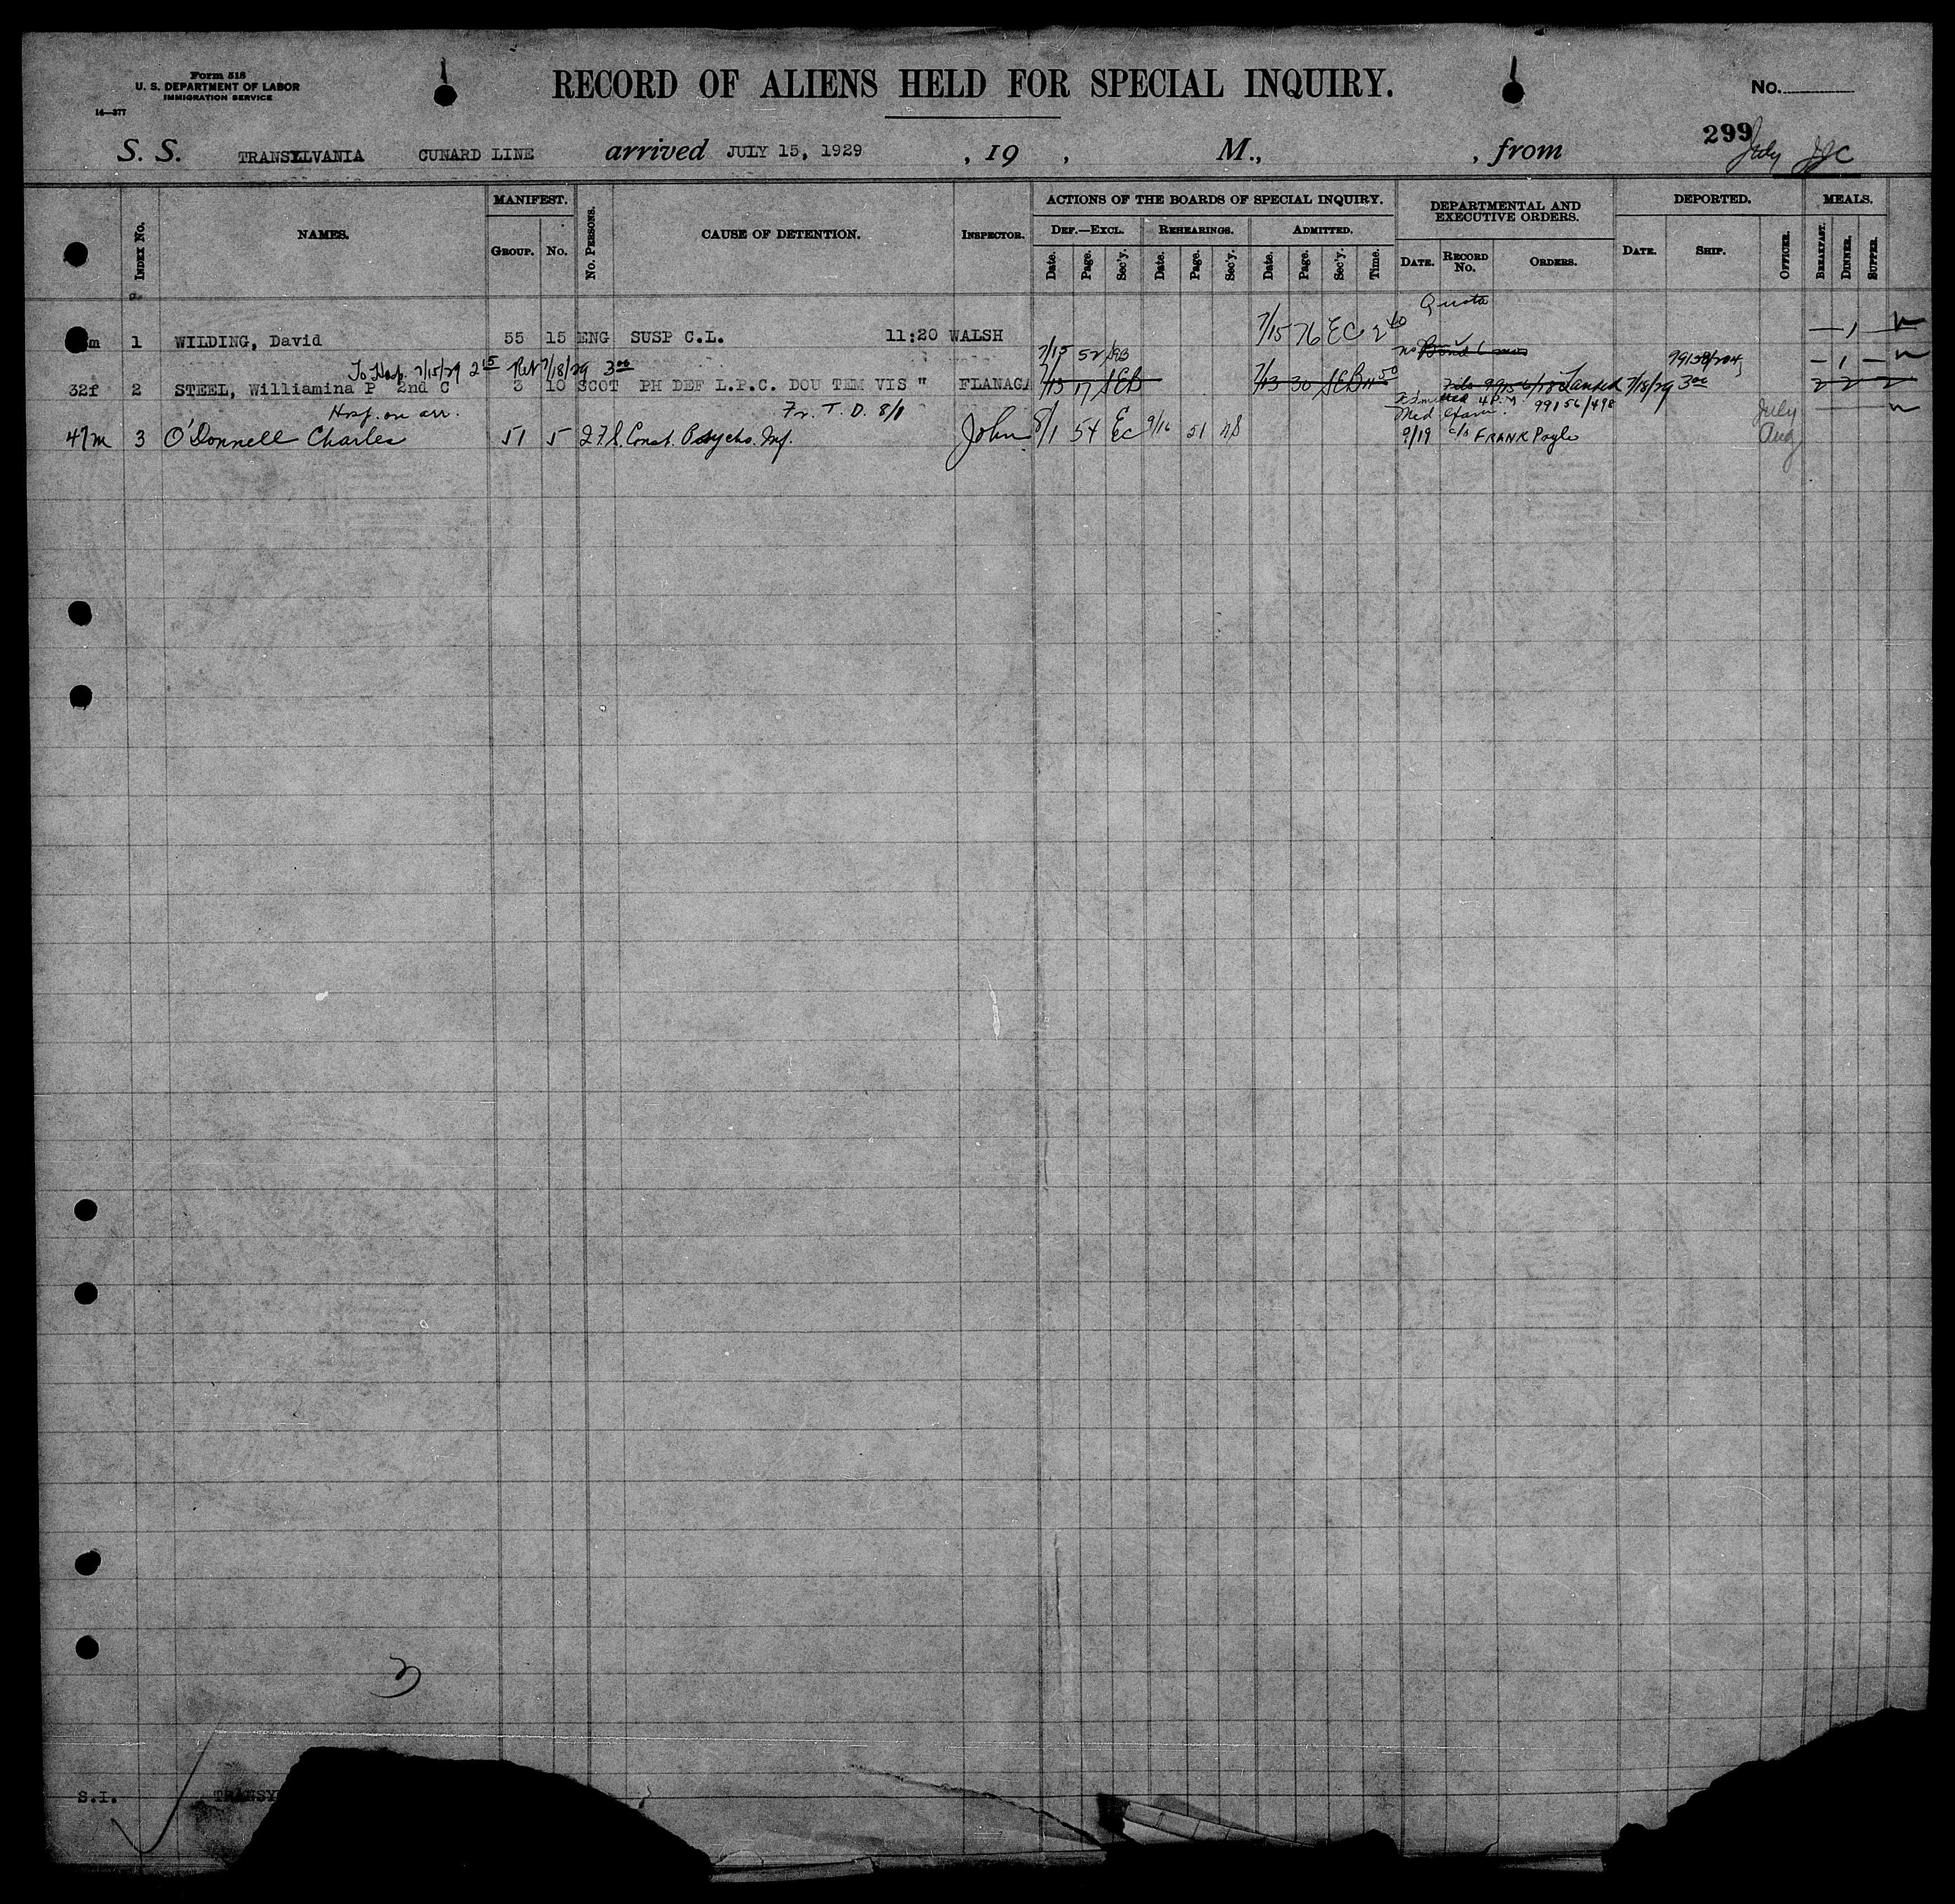 Form 518
U. S. DEPARTMENT OF LABOR
IMMIGRATION SERVICE
14—377
RECORD OF ALIENS HELD FOR SPECIAL INQUIRY.
No.
299
July
S. S. TRANSYLVANIA CUNARD LINE arrived JULY 15, 1929 , 19 , M., , from
Index No.
NAMES.
MANIFEST.
Group. No.
No. Persons.
CAUSE OF DETENTION.
Inspector.
ACTIONS OF THE BOARDS OF SPECIAL INQUIRY.
Def.—Excl. Rehearings. Admitted.
Date. Page. Sec'y. Date. Page. Sec'y. Date. Page. Sec'y. Time.
DEPARTMENTAL AND
EXECUTIVE ORDERS.
Date. Record No. Orders.
DEPORTED.
Date. Ship. Officer.
MEALS.
Breakfast. Dinner. Supper.
Quota
m 1 WILDING, David 55 15 ENG SUSP C.L. 11:20 WALSH 7/15 76 EC 2 40 — 1
7/15 52
To Hosp. 7/15/29 2 15 Ret 7/18/29 3 00
32f 2 STEEL, Williamina P 2nd C 3 10 SCOT PH DEF L.P.C. DOU TEM VIS " FLANAGA 7/13 17 SEB 7/13 30 SEB 11 50 Landed 7/18/29 3 00 2 2 2
Hosp. on arr. Fr. T. D. 8/1 Med Exam. 99156/498 July
47m 3 O'Donnell Charles 51 5 27 S. Const. Psycho. Inf. John 8/1 54 EC 9/16 51 9/19 c/o FRANK Aug
3
S.I. TRANSY